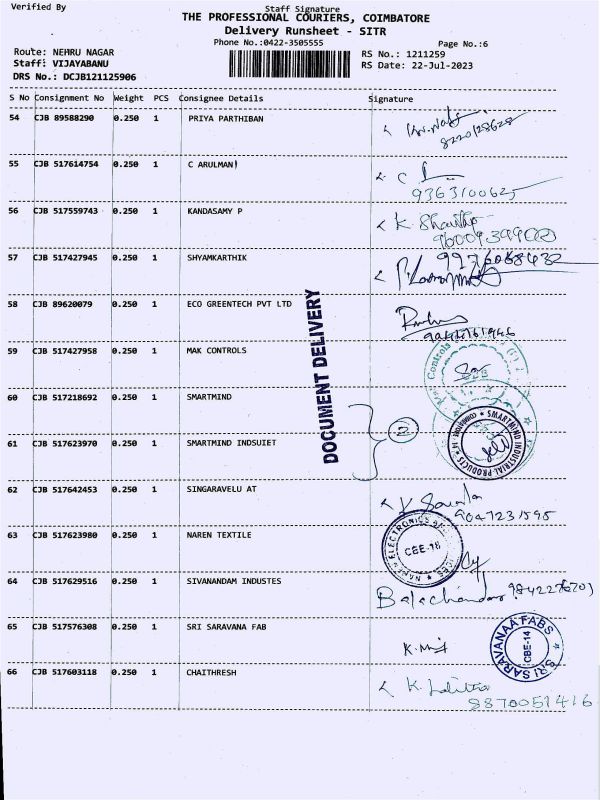 Verified By Staff Signature
THE PROFESSIONAL COURIERS, COIMBATORE
Delivery Runsheet - SITR
Phone No.:0422-3505555 Page No.:6
Route: NEHRU NAGAR RS No.: 1211259
Staff: VIJAYABANU RS Date: 22-Jul-2023
DRS No.: DCJB121125906
S No Consignment No Weight PCS Consignee Details Signature
54 CJB 89588290 0.250 1 PRIYA PARTHIBAN
8220128628
55 CJB 517614754 0.250 1 C ARULMANI
C
9363100625
56 CJB 517559743 0.250 1 KANDASAMY P
K.
57 CJB 517427945 0.250 1 SHYAMKARTHIK
9976068432
58 CJB 89620079 0.250 1 ECO GREENTECH PVT LTD
DOCUMENT DELIVERY
59 CJB 517427958 0.250 1 MAK CONTROLS
Controls
60 CJB 517218692 0.250 1 SMARTMIND
2
61 CJB 517623970 0.250 1 SMARTMIND INDSUIET
SMARTMIND INDUSTRIAL PRODUCTS
62 CJB 517642453 0.250 1 SINGARAVELU AT
9047231595
63 CJB 517623980 0.250 1 NAREN TEXTILE
ELECTRONICS
CBE-16
64 CJB 517629516 0.250 1 SIVANANDAM INDUSTES
Balachandar
65 CJB 517576308 0.250 1 SRI SARAVANA FAB
SRI SARAVANAA FABS
CBE-14
66 CJB 517603118 0.250 1 CHAITHRESH
K. Lalitha
8870051416